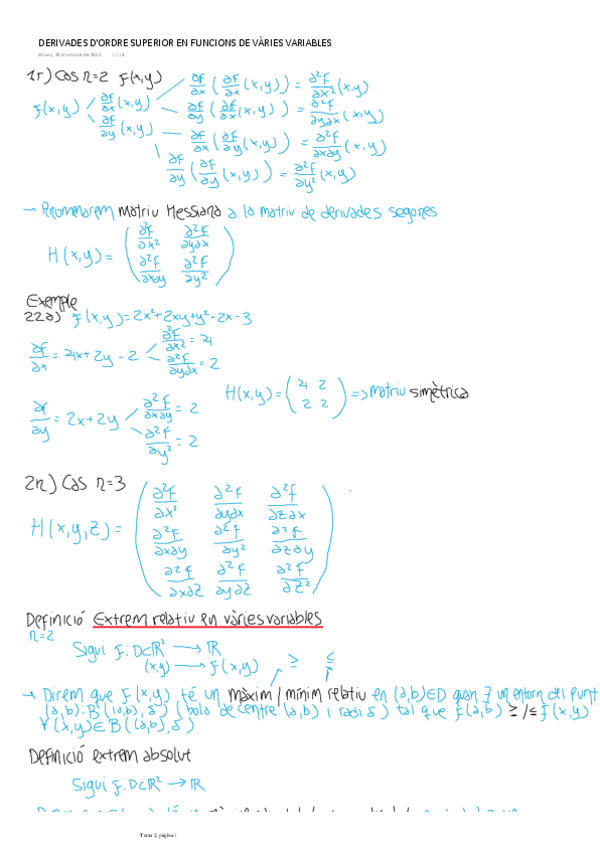 DERIVADES D'ORDRE SUPERIOR EN FUNCIONS DE VÀRIES VARIABLES
1r) Cas n=2 f(x,y)
f(x,y)
∂f/∂x (x,y)
∂f/∂y (x,y)
∂f/∂x (∂f/∂x (x,y)) = ∂²f/∂x² (x,y)
∂f/∂y (∂f/∂x (x,y)) = ∂²f/∂y∂x (x,y)
∂f/∂x (∂f/∂y (x,y)) = ∂²f/∂x∂y (x,y)
∂f/∂y (∂f/∂y (x,y)) = ∂²f/∂y² (x,y)
→ Anomenarem matriu Hessiana a la matriu de derivades segones
H(x,y) = ( ∂²f/∂x² ∂²f/∂y∂x
∂²f/∂x∂y ∂²f/∂y² )
Exemple
22a) f(x,y)=2x²+2xy+y²-2x-3
∂f/∂x = 4x+2y-2
∂²f/∂x² = 4
∂²f/∂y∂x = 2
H(x,y) = ( 4 2
2 2 ) => matriu simètrica
∂f/∂y = 2x+2y
∂²f/∂x∂y = 2
∂²f/∂y² = 2
2n) Cas n=3
H(x,y,z) = ( ∂²f/∂x² ∂²f/∂y∂x ∂²f/∂z∂x
∂²f/∂x∂y ∂²f/∂y² ∂²f/∂z∂y
∂²f/∂x∂z ∂²f/∂y∂z ∂²f/∂z² )
Definició Extrem relatiu en vàries variables
n=2
Sigui f: D⊂ℝ² → ℝ
(x,y) → f(x,y)
≥ ≤
→ Direm que f(x,y) té un màxim / mínim relatiu en (a,b)∈D quan ∃ un entorn del punt
(a,b): B((a,b),δ) (bola de centre (a,b) i radi δ) tal que f(a,b) ≥/≤ f(x,y)
∀(x,y)∈B((a,b),δ)
Definició extrem absolut
Sigui f: D⊂ℝ² → ℝ
Tema 2, página 1